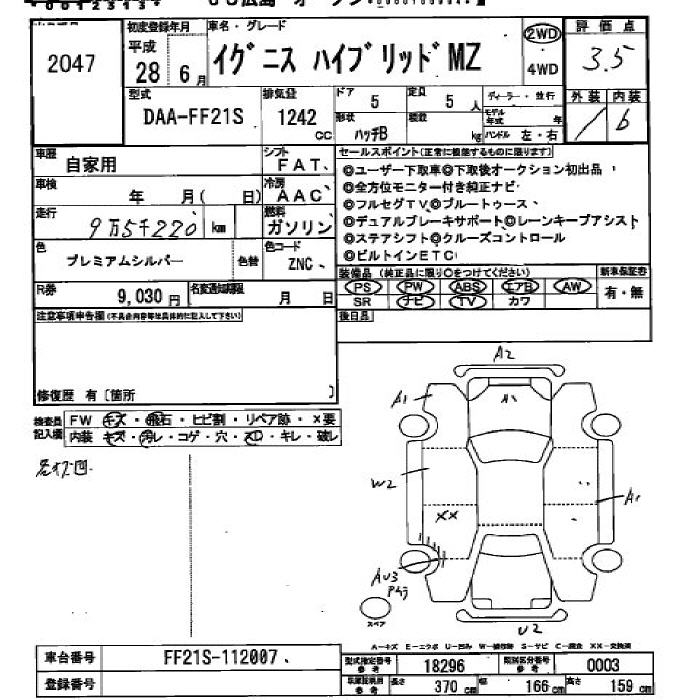 2047
初度登録年月
平成
28年 6月
車名・グレード
イグニス ハイブリッド MZ
2WD
4WD
評価点
3.5
型式
DAA-FF21S
排気量
1242
CC
ドア 5
定員 5人
形状 ハッチB
積載 kg
ディーラー・並行
モデル年式 年
ハンドル 左・右
外装 内装
/ b
車歴 自家用
シフト FAT、
車検 年 月( 日)
冷房 AAC
走行 9万5千220 km
燃料 ガソリン
色 プレミアムシルバー
色替
色コード ZNC、
R券 9,030円
名変通知期限 月 日
セールスポイント(正常に機能するものに限る)
◎ユーザー下取車◎下取後オークション初出品
◎全方位モニター付き純正ナビ
◎フルセグTV◎ブルートゥース
◎デュアルブレーキサポート◎レーンキープアシスト
◎ステアシフト◎クルーズコントロール
◎ビルトインETC
装備品 (純正品に限り○をつけてください)
新車保証書
PS PW ABS エアB AW
有・無
SR ナビ TV カワ
後日品
注意事項申告欄(不具合内容等は具体的に記入して下さい)
修復歴 有〔箇所 〕
検査員記入欄
FW キズ・飛石・ヒビ割・リペア跡・×要
内装 キズ・汚レ・コゲ・穴・スレ・キレ・破レ
A2
A1
A1
W2
A1
XX
AU3
U2
スペア
A-キズ E-エクボ U-凹み W-補修跡 S-サビ C-腐食 XX-交換済
車台番号 FF21S-112007、
登録番号
型式指定番号 参考 18296
類別区分番号 参考 0003
長さ 370 cm
幅 166 cm
高さ 159 cm